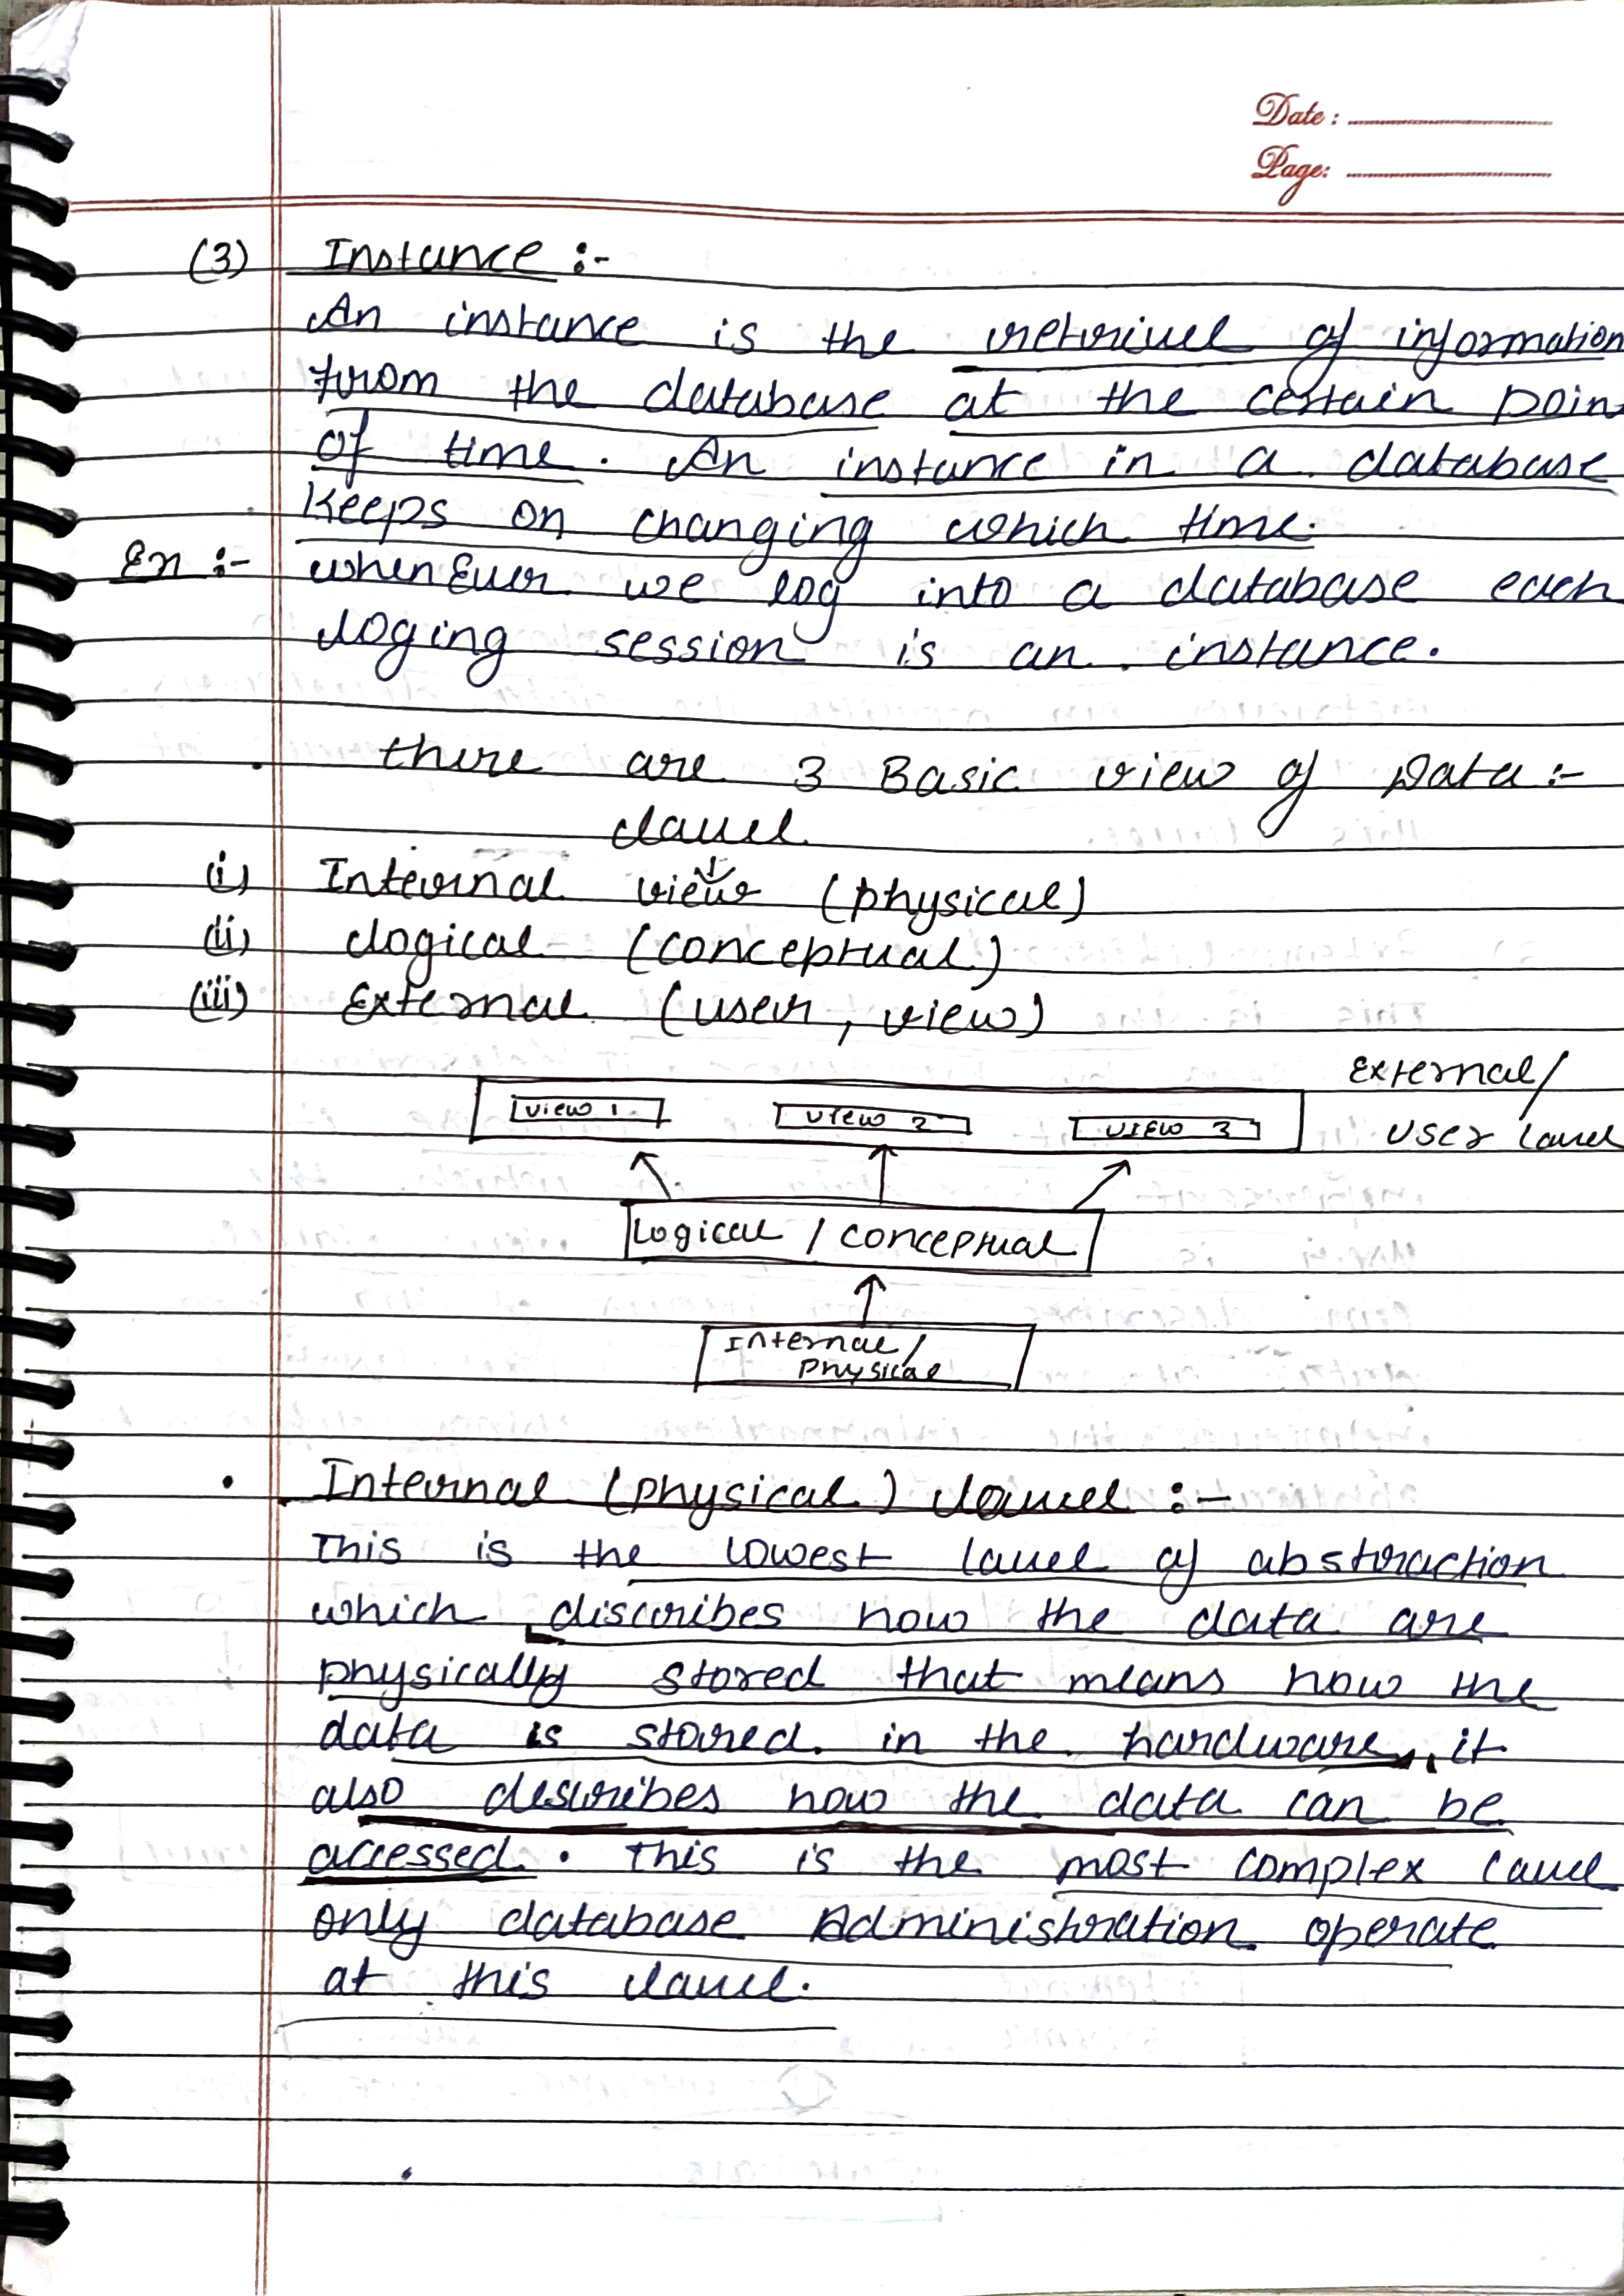 Date :
Page:
(3) Instance :-
An instance is the retrivel of information
from the database at the certain poin
of time. An instance in a database
keeps on changing which time.
Ex :- whenEver we log into a database each
loging session is an instance.
there are 3 Basic view of Data :-
lavel
(i) Internal view (physical)
(ii) logical (conceptual)
(iii) External (user, view)
External/
view 1 view 2 view 3
User lavel
Logical / conceptual
Internal/
physical
• Internal (physical) lavel :-
This is the lowest lavel of abstraction
which discribes how the data are
physically stored that means how the
data is stored in the hardware, it
also describes how the data can be
accessed. This is the most complex lavel
only database Administration operate
at this lavel.